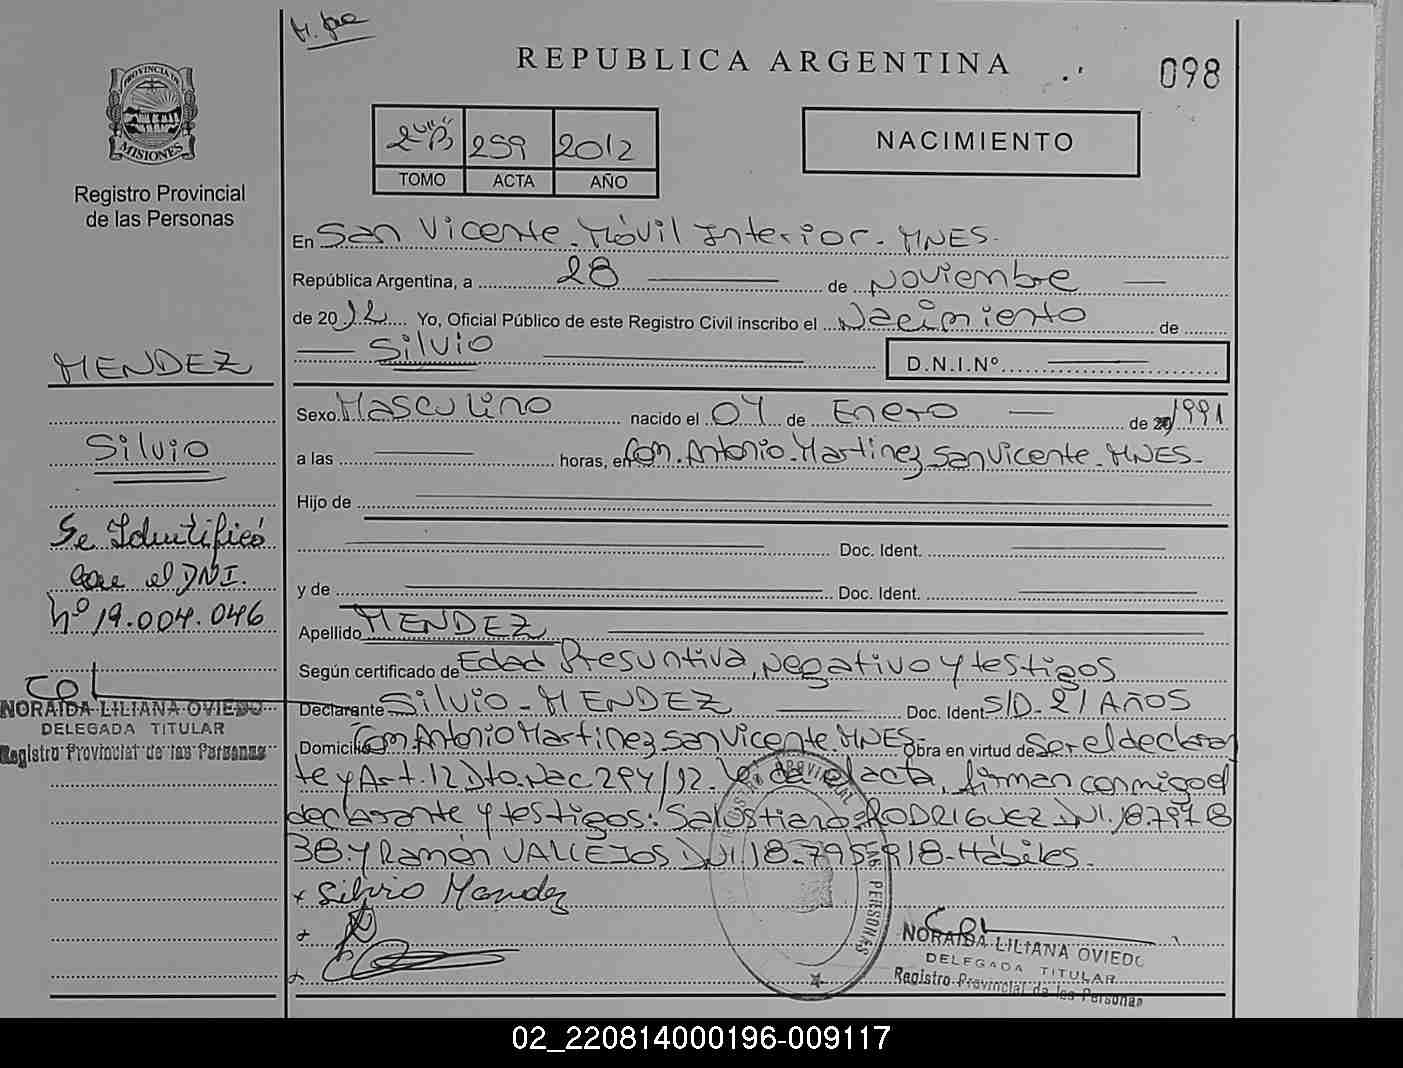 REPUBLICA ARGENTINA
098
PROVINCIA DE
MISIONES
Registro Provincial
de las Personas
2º"B" 259 2012
TOMO ACTA AÑO
NACIMIENTO
En San Vicente. Móvil Interior. MNES.
República Argentina, a 28 de Noviembre
de 2012 Yo, Oficial Público de este Registro Civil inscribo el Nacimiento de
Silvio
D.N.I.Nº
MENDEZ
Silvio
Se Identificó
con el DNI.
Nº 19.004.046
NORAIDA LILIANA OVIEDO
DELEGADA TITULAR
Registro Provincial de las Personas
Sexo Masculino nacido el 07 de Enero de 1991
a las horas, en Com. Antonio Martinez San Vicente. MNES.
Hijo de
Doc. Ident.
y de Doc. Ident.
Apellido MENDEZ
Según certificado de Edad Presuntiva, Negativo y testigos
Declarante Silvio - MENDEZ Doc. Ident S/D. 21 AÑOS
Domicilio Com Antonio Martinez San Vicente. MNES. Obra en virtud de Ser el declaran
te y Art. 12 Dto. Nac 294/92. Leída el acta, firman conmigo el
declarante y testigos: Salustiano RODRIGUEZ DNI. 18.797.8
38. y Ramón VALLEJOS DNI 18.795.918 - Hábiles.
x Silvio Mendez
PROVINCIAL
PERSONAS
NORAIDA LILIANA OVIEDO
DELEGADA TITULAR
Registro Provincial de las Personas
02_220814000196-009117